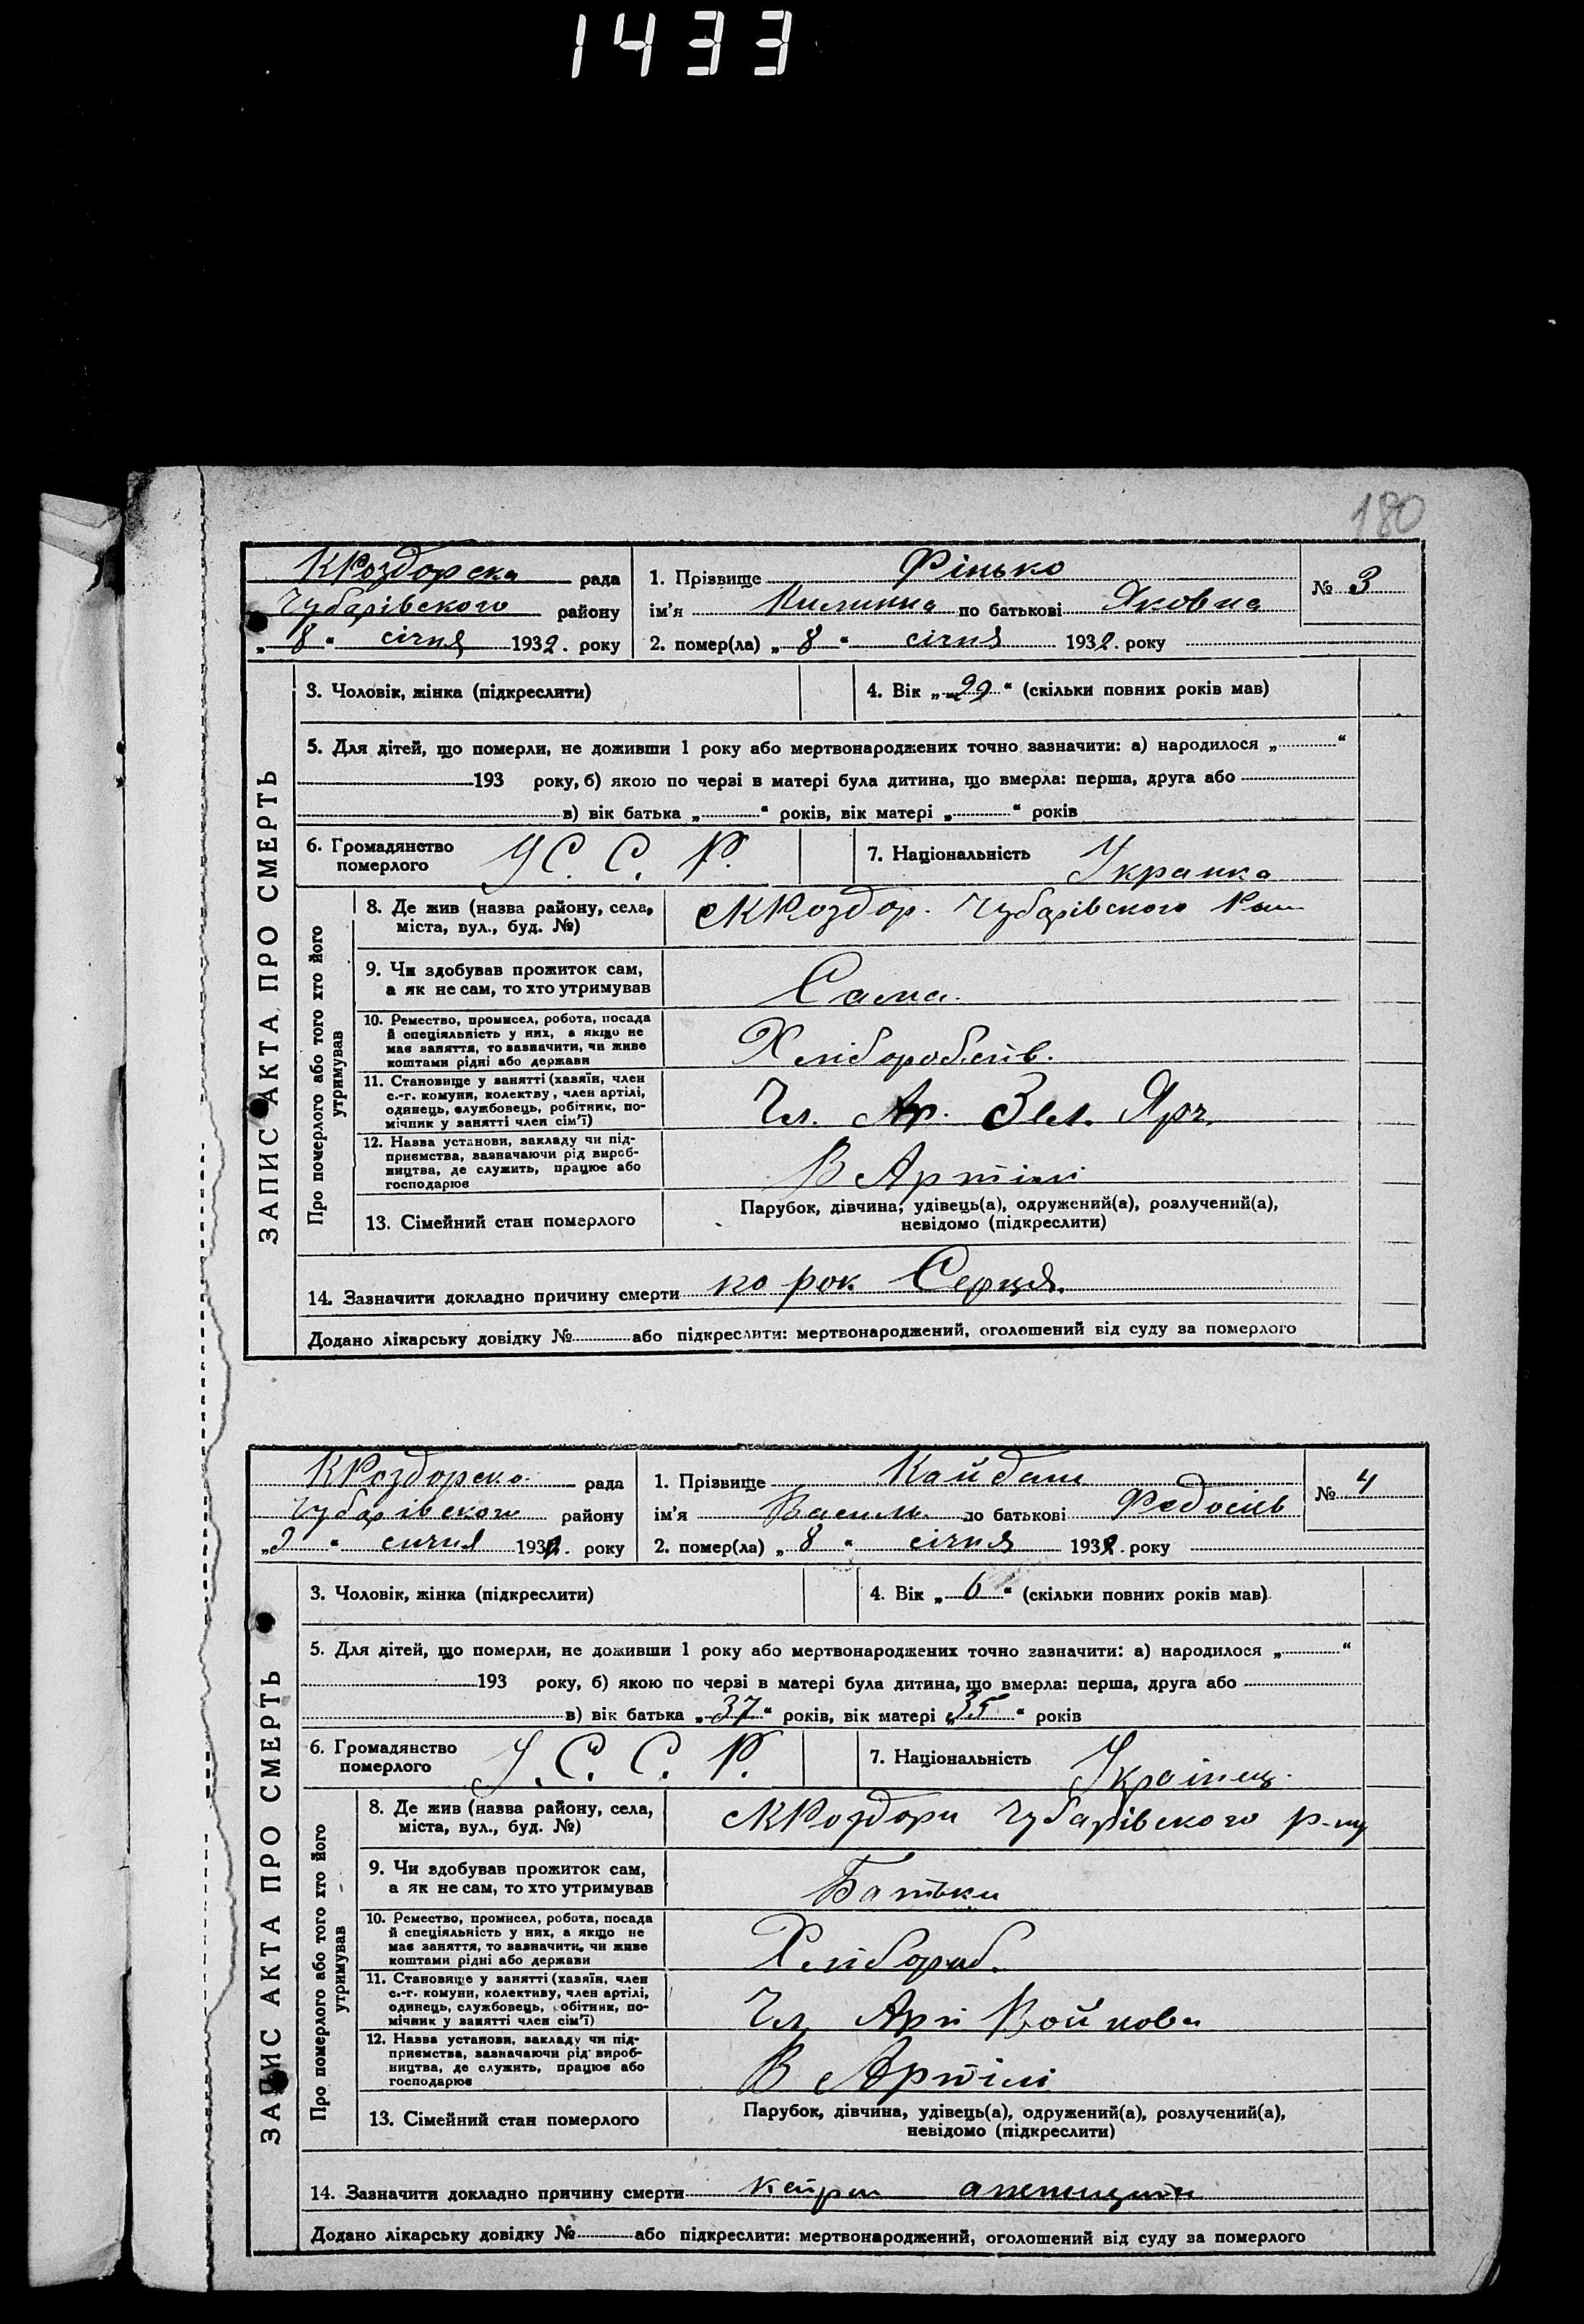 1433
180
КРоздорска рада
Чубарівського району
„ 8 “ січня 1932. року
1. Прізвище Фінько
ім'я Килина по батькові Яковна
2. помер(ла) „ 8 “ січня 1932. року
№ 3
ЗАПИС АКТА ПРО СМЕРТЬ
3. Чоловік, жінка (підкреслити)
4. Вік „ 29 “ (скільки повних років мав)
5. Для дітей, що померли, не доживши 1 року або мертвонароджених точно зазначити: а) народилося „ “
193 року, б) якою по черзі в матері була дитина, що вмерла: перша, друга або
в) вік батька „ “ років, вік матері „ “ років
6. Громадянство
померлого
У С. С. Р.
7. Національність Украинка
Про померлого або того хто його
утримував
8. Де жив (назва району, села,
міста, вул., буд. №)
сКРоздор. Чубарівского
9. Чи здобував прожиток сам,
а як не сам, то хто утримував
Сама.
10. Ремество, промисел, робота, посада
й спеціяльність у них, а якщо не
має заняття, то зазначити, чи живе
коштами рідні або держави
11. Становище у занятті (хазяїн, член
с.-г. комуни, колектву, член артілі,
одинець, службовець, робітник, по-
мічник у занятті член сім'ї)
Чл. Ар.
12. Назва установи, закладу чи під-
приємства, зазначаючи рід вироб-
ництва, де служить, працює або
господарює
В Артілі
13. Сімейний стан померлого
Парубок, дівчина, удівець(а), одружений(а), розлучений(а),
невідомо (підкреслити)
14. Зазначити докладно причину смерти по рок Серця.
Додано лікарську довідку № або підкреслити: мертвонароджений, оголошений від суду за померлого
КРоздорска рада
Чубарівського району
„ 9 “ сичня 1932. року
1. Прізвище Кайдаш
ім'я Василь по батькові Федосіїв
2. помер(ла) „ 8 “ січня 1932. року
№ 4
ЗАПИС АКТА ПРО СМЕРТЬ
3. Чоловік, жінка (підкреслити)
4. Вік „ 6 “ (скільки повних років мав)
5. Для дітей, що померли, не доживши 1 року або мертвонароджених точно зазначити: а) народилося „ “
193 року, б) якою по черзі в матері була дитина, що вмерла: перша, друга або
в) вік батька „ 37 “ років, вік матері „ 35 “ років
6. Громадянство
померлого
У. С. С. Р.
7. Національність Українец.
Про померлого або того хто його
утримував
8. Де жив (назва району, села,
міста, вул., буд. №)
сКРоздори Чубарівского р-ну
9. Чи здобував прожиток сам,
а як не сам, то хто утримував
Батьки
10. Ремество, промисел, робота, посада
й спеціяльність у них, а якщо не
має заняття, то зазначити, чи живе
коштами рідні або держави
Хлібороб.
11. Становище у занятті (хазяїн, член
с.-г. комуни, колективу, член артілі,
одинець, службовець, робітник, по-
мічник у занятті член сім'ї)
Чл Арт Войкова
12. Назва установи, закладу чи під-
приємства, зазначаючи рід вироб-
ництва, де служить, працює або
господарює
В Артілі
13. Сімейний стан померлого
Парубок, дівчина, удівець(а), одружений(а), розлучений(а),
невідомо (підкреслити)
14. Зазначити докладно причину смерти
Додано лікарську довідку № або підкреслити: мертвонароджений, оголошений від суду за померлого